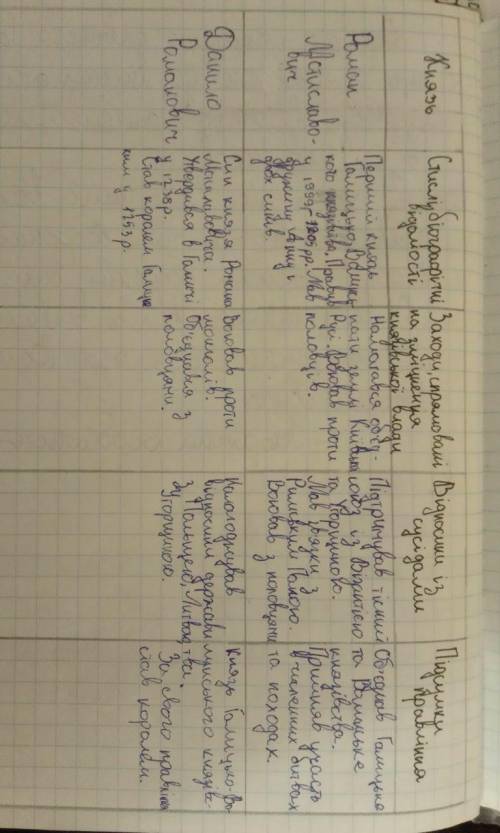 Князь
Стислі біографічні
відомості
Заходи, спрямовані
на зміцнення
князівської влади
Відносини із
сусідами
Підсумки
правління
Роман
Мстиславо-
вич
Перший князь
Галицько-Волинсь
кого князівства. Правив
у 1199-1205 рр. Мав
дружину Анну і
двох синів.
Намагався об'єд-
нати землі Київської
Русі. Воював проти
половців.
Підтримував тісний
союз із Візантією
та Угорщиною.
Мав зв'язки з
Римським Папою.
Воював з половцями
Об'єднав Галицьке
та Волинське
князівства.
Прийняв участь
в численних битвах
та походах.
Данило
Романович
Син князя Романа
Мстиславовича.
Утвердився в Галичі
у 1238р.
Став королем Галиць
ким у 1253 р.
Воював проти
монголів.
Об'єднувався з
половцями.
Налагоджував
відносини держави
з Польщею, Литвою,
Угорщиною.
Князь Галицько-Во
линського князівс-
тва.
За свого правління
став королем.